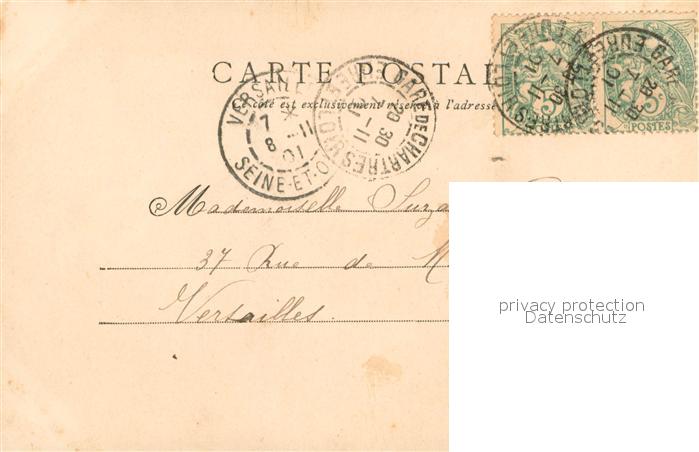 CARTE POSTAL
Ce côté est exclusivement réservé à l'adresse
VERSAILLES
7
8 -11
01
SEINE-ET-O
GARE DE CHARTRES
20 30
-11
EURE
GARE
20 30
7 -11
5
POSTES
Mademoiselle
37 Rue de M
Versailles.
privacy protection
Datenschutz